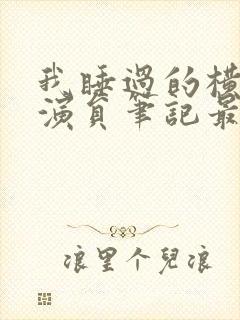 我睡過的橫
演員筆記最
浪里个兒浪